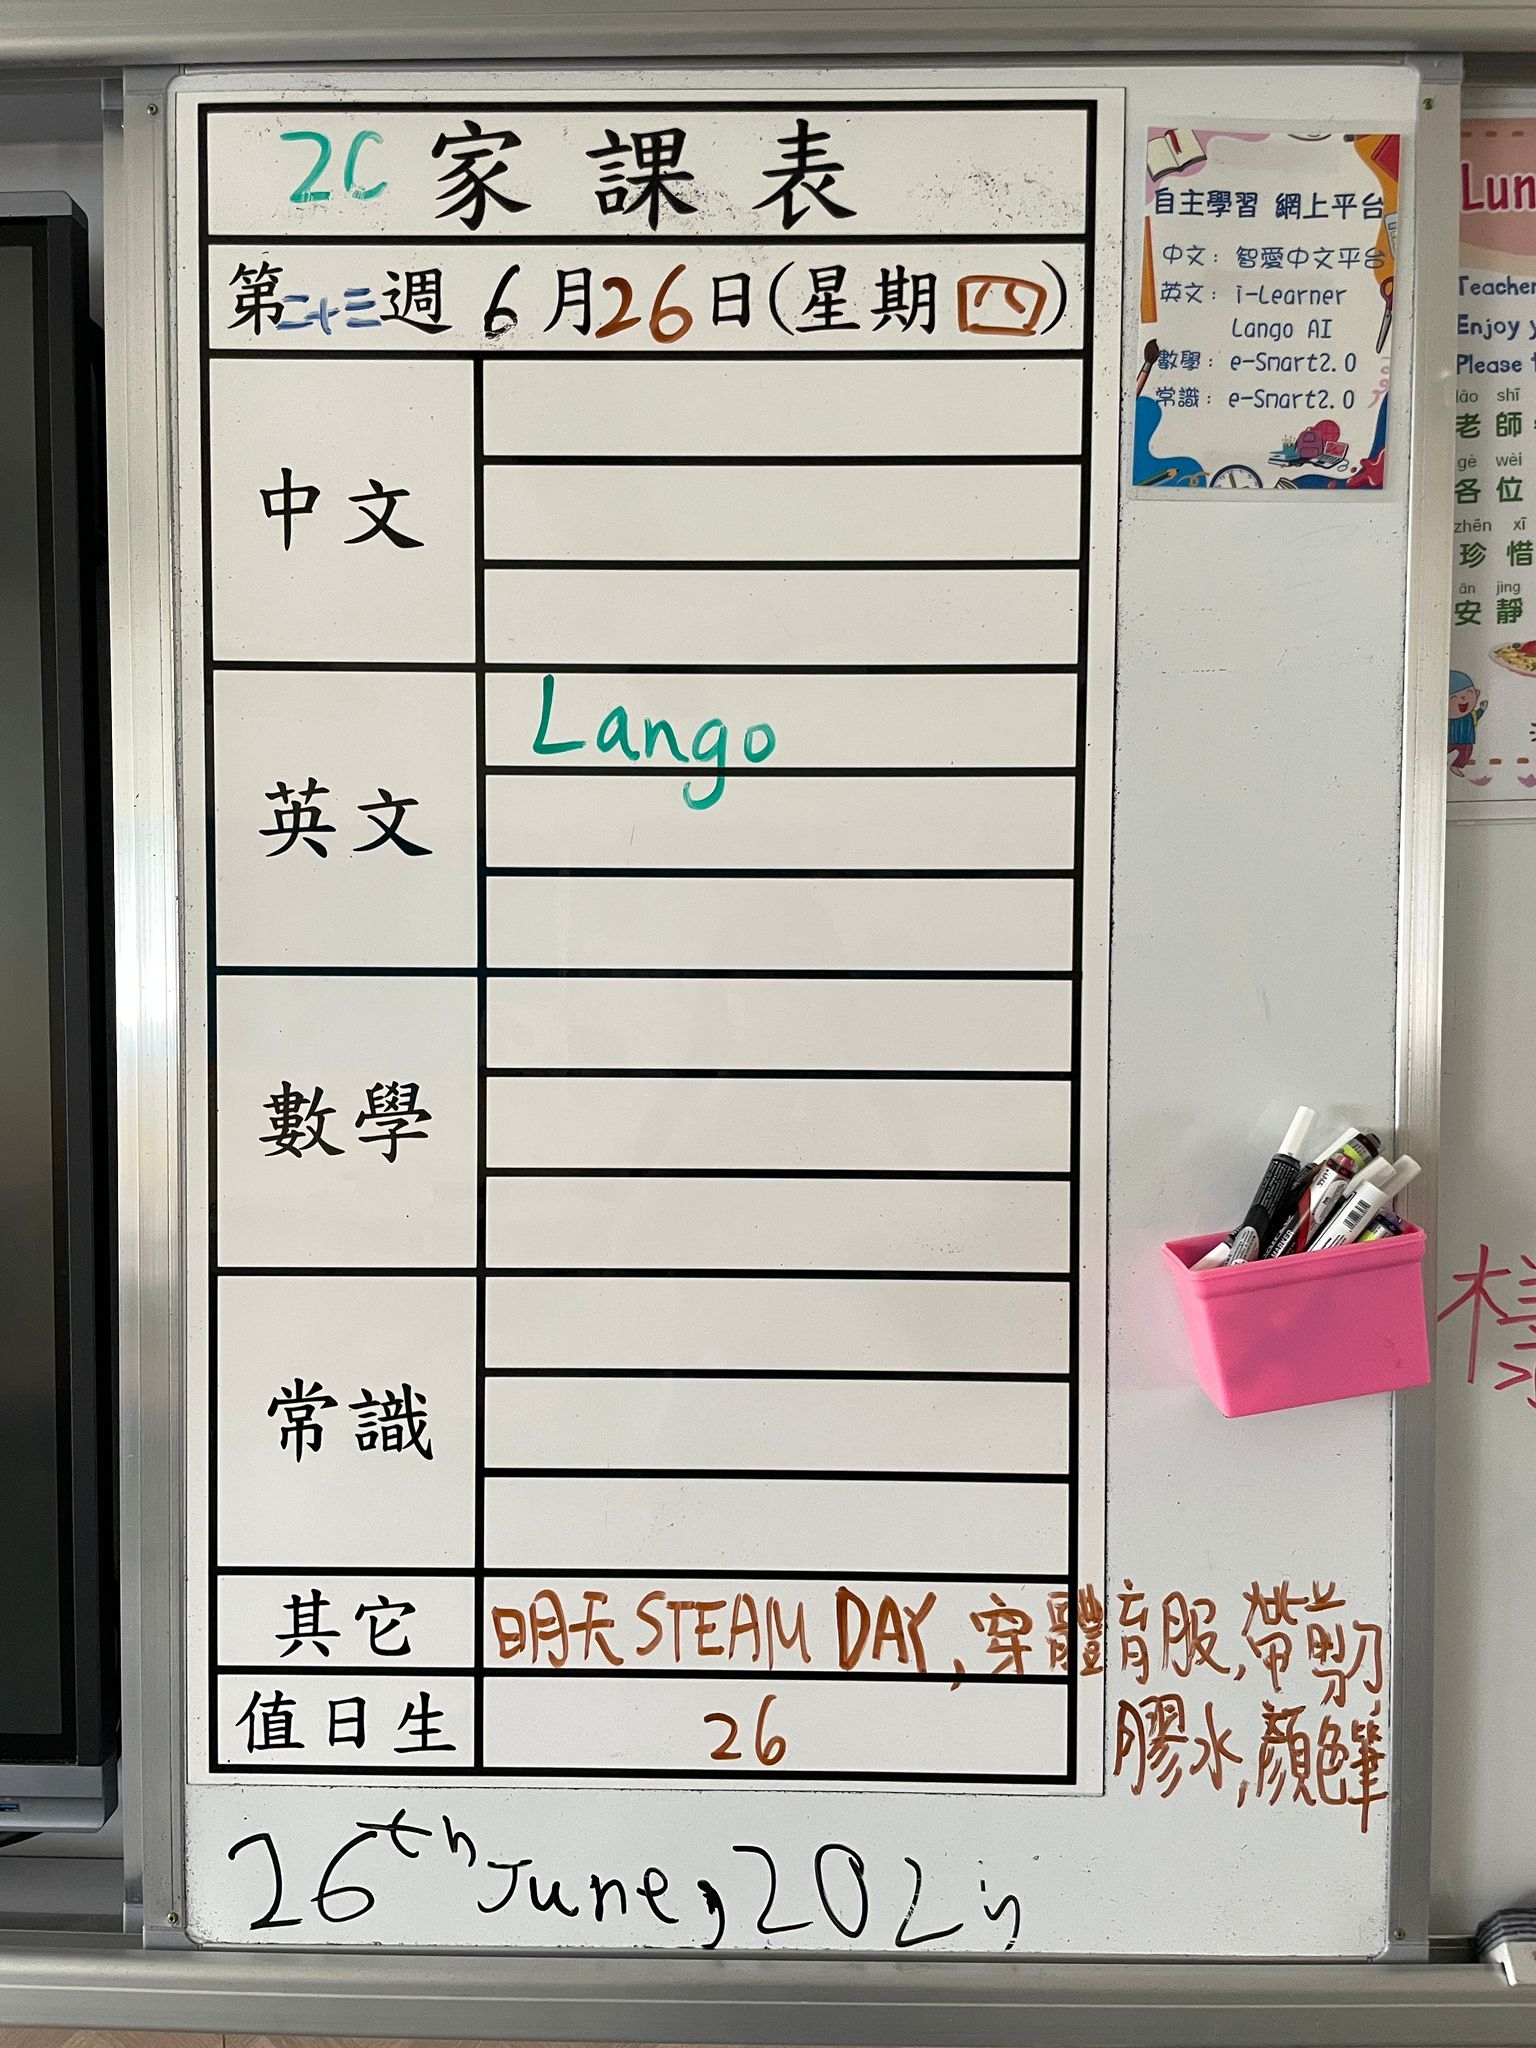 2C 家課表
第二十三週 6月26日(星期四)
中文
英文 Lango
數學
常識
其它 明天STEAM DAY, 穿體育服, 帶剪刀,
膠水, 顏色筆
值日生 26
26th June, 202
自主學習 網上平台
中文：智愛中文平台
英文：i-Learner
Lango AI
數學：e-Smart2.0
常識：e-Smart2.0
Lun
Teacher
Enjoy y
Please
lǎo shī
老師
gè wèi
各位
zhēn xī
珍惜
ān jìng
安靜
樣